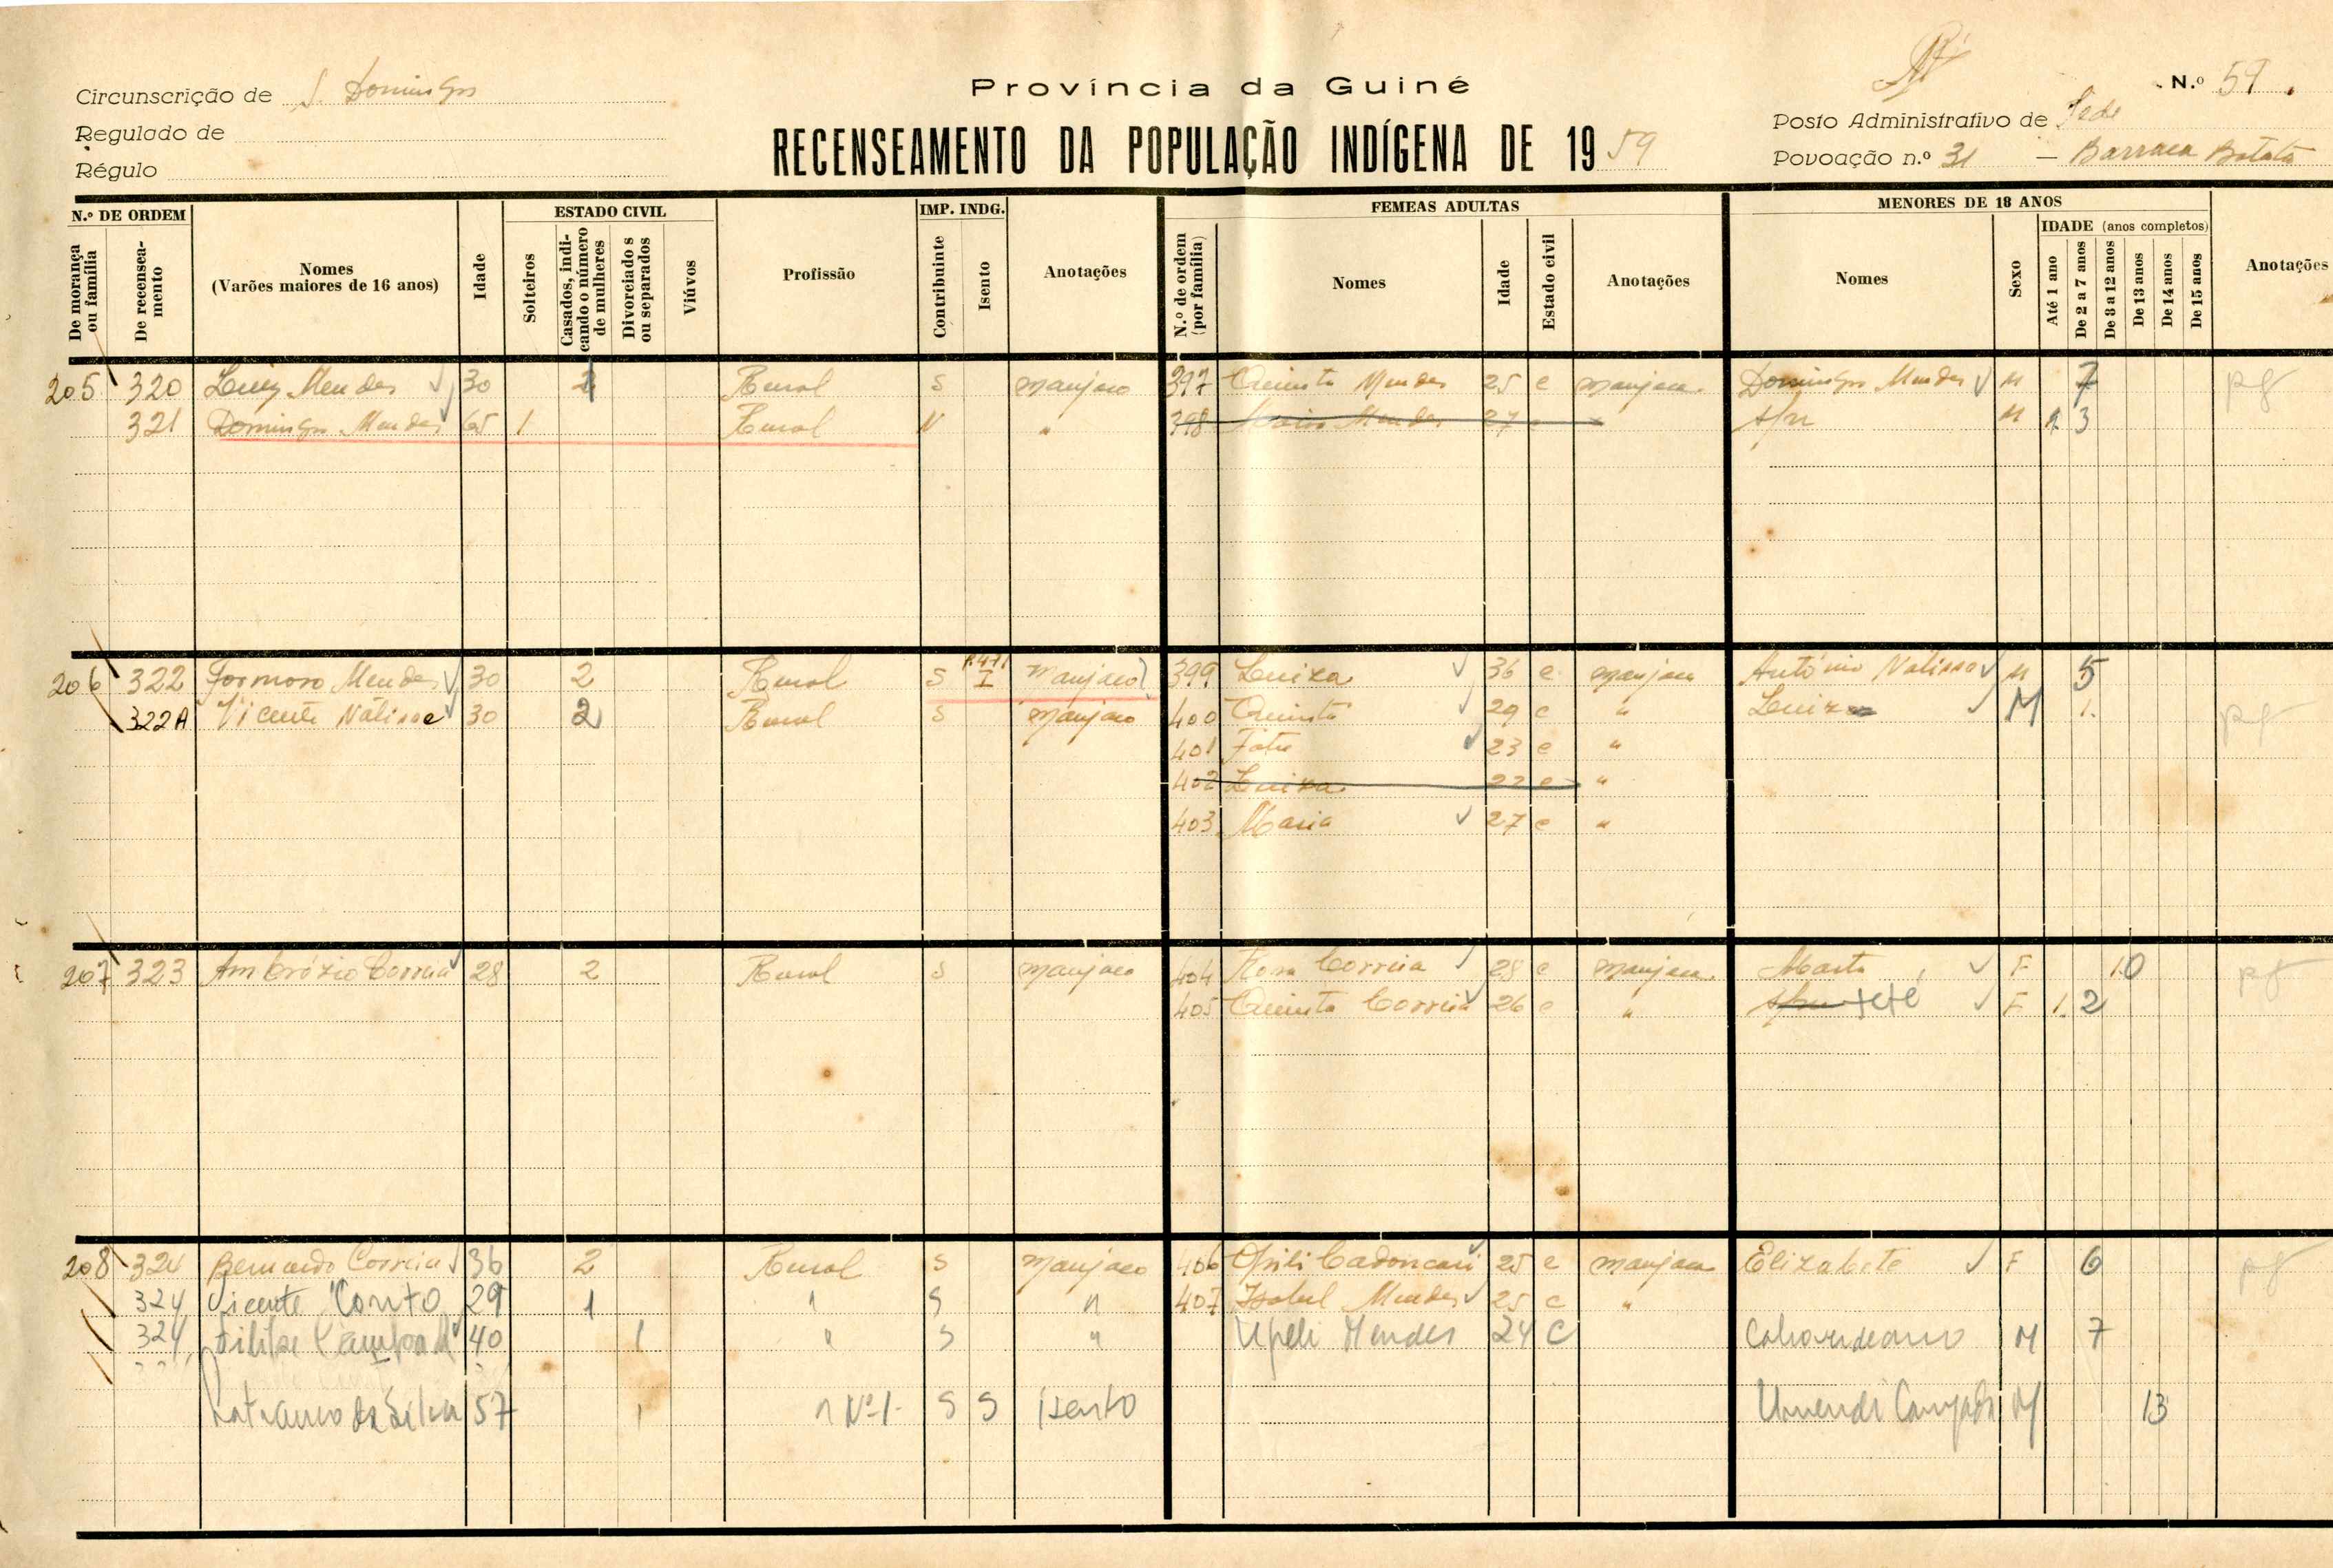 N.º 59.
Circunscrição de S. Domingos
Província da Guiné
Posto Administrativo de Sede
Regulado de
RECENSEAMENTO DA POPULAÇÃO INDÍGENA DE 1959
Povoação n.º 31 – Barraca Batata
Régulo
N.º DE ORDEM
De morança ou família
De recenseamento
Nomes
(Varões maiores de 16 anos)
Idade
ESTADO CIVIL
Solteiros
Casados, indicando o número de mulheres
Divorciados ou separados
Viúvos
Profissão
IMP. INDG.
Contribuinte
Isento
Anotações
FEMEAS ADULTAS
N.º de ordem (por família)
Nomes
Idade
Estado civil
Anotações
MENORES DE 18 ANOS
Nomes
Sexo
IDADE (anos completos)
Até 1 ano
De 2 a 7 anos
De 8 a 12 anos
De 13 anos
De 14 anos
De 15 anos
Anotações
205 320 Luiz Mendes 30 Rural S manjaco 397 Quinta Mendes 25 c manjaca. Domingos Mendes M 7 pg
321 Domingos Mendes 65 1 Rural N " 398 Maria Mendes 27 M 1. 3
206 322 Formoso Mendes 30 2 Rural S I manjaco 399 Luiza 36 c manjaca António Nalissa M 5
322A Vicente Nalissae 30 2 Rural S manjaco 400 Quinta 29 c " Luiz M 1. pg
401 23 c "
402 Luiza 22 c "
403 Maria 27 c "
207 323 Ambrózio Correia 28 2 Rural S manjaco 404 Rosa Correia 28 c manjaca. Marta F 10 pg
405 Quinta Correia 26 c " teté F 1. 2
208 324 Bernardo Correia 36 2 Rural S manjaco 406 25 c manjaca Elizabete F 6 pg
324 Vicente Couto 29 1 " S " 407 Isabel Mendes 25 c "
324 40 1 " S " Upeli Mendes 24 C M 7
da Silva 57 1 " Nº1- S S isento M 13